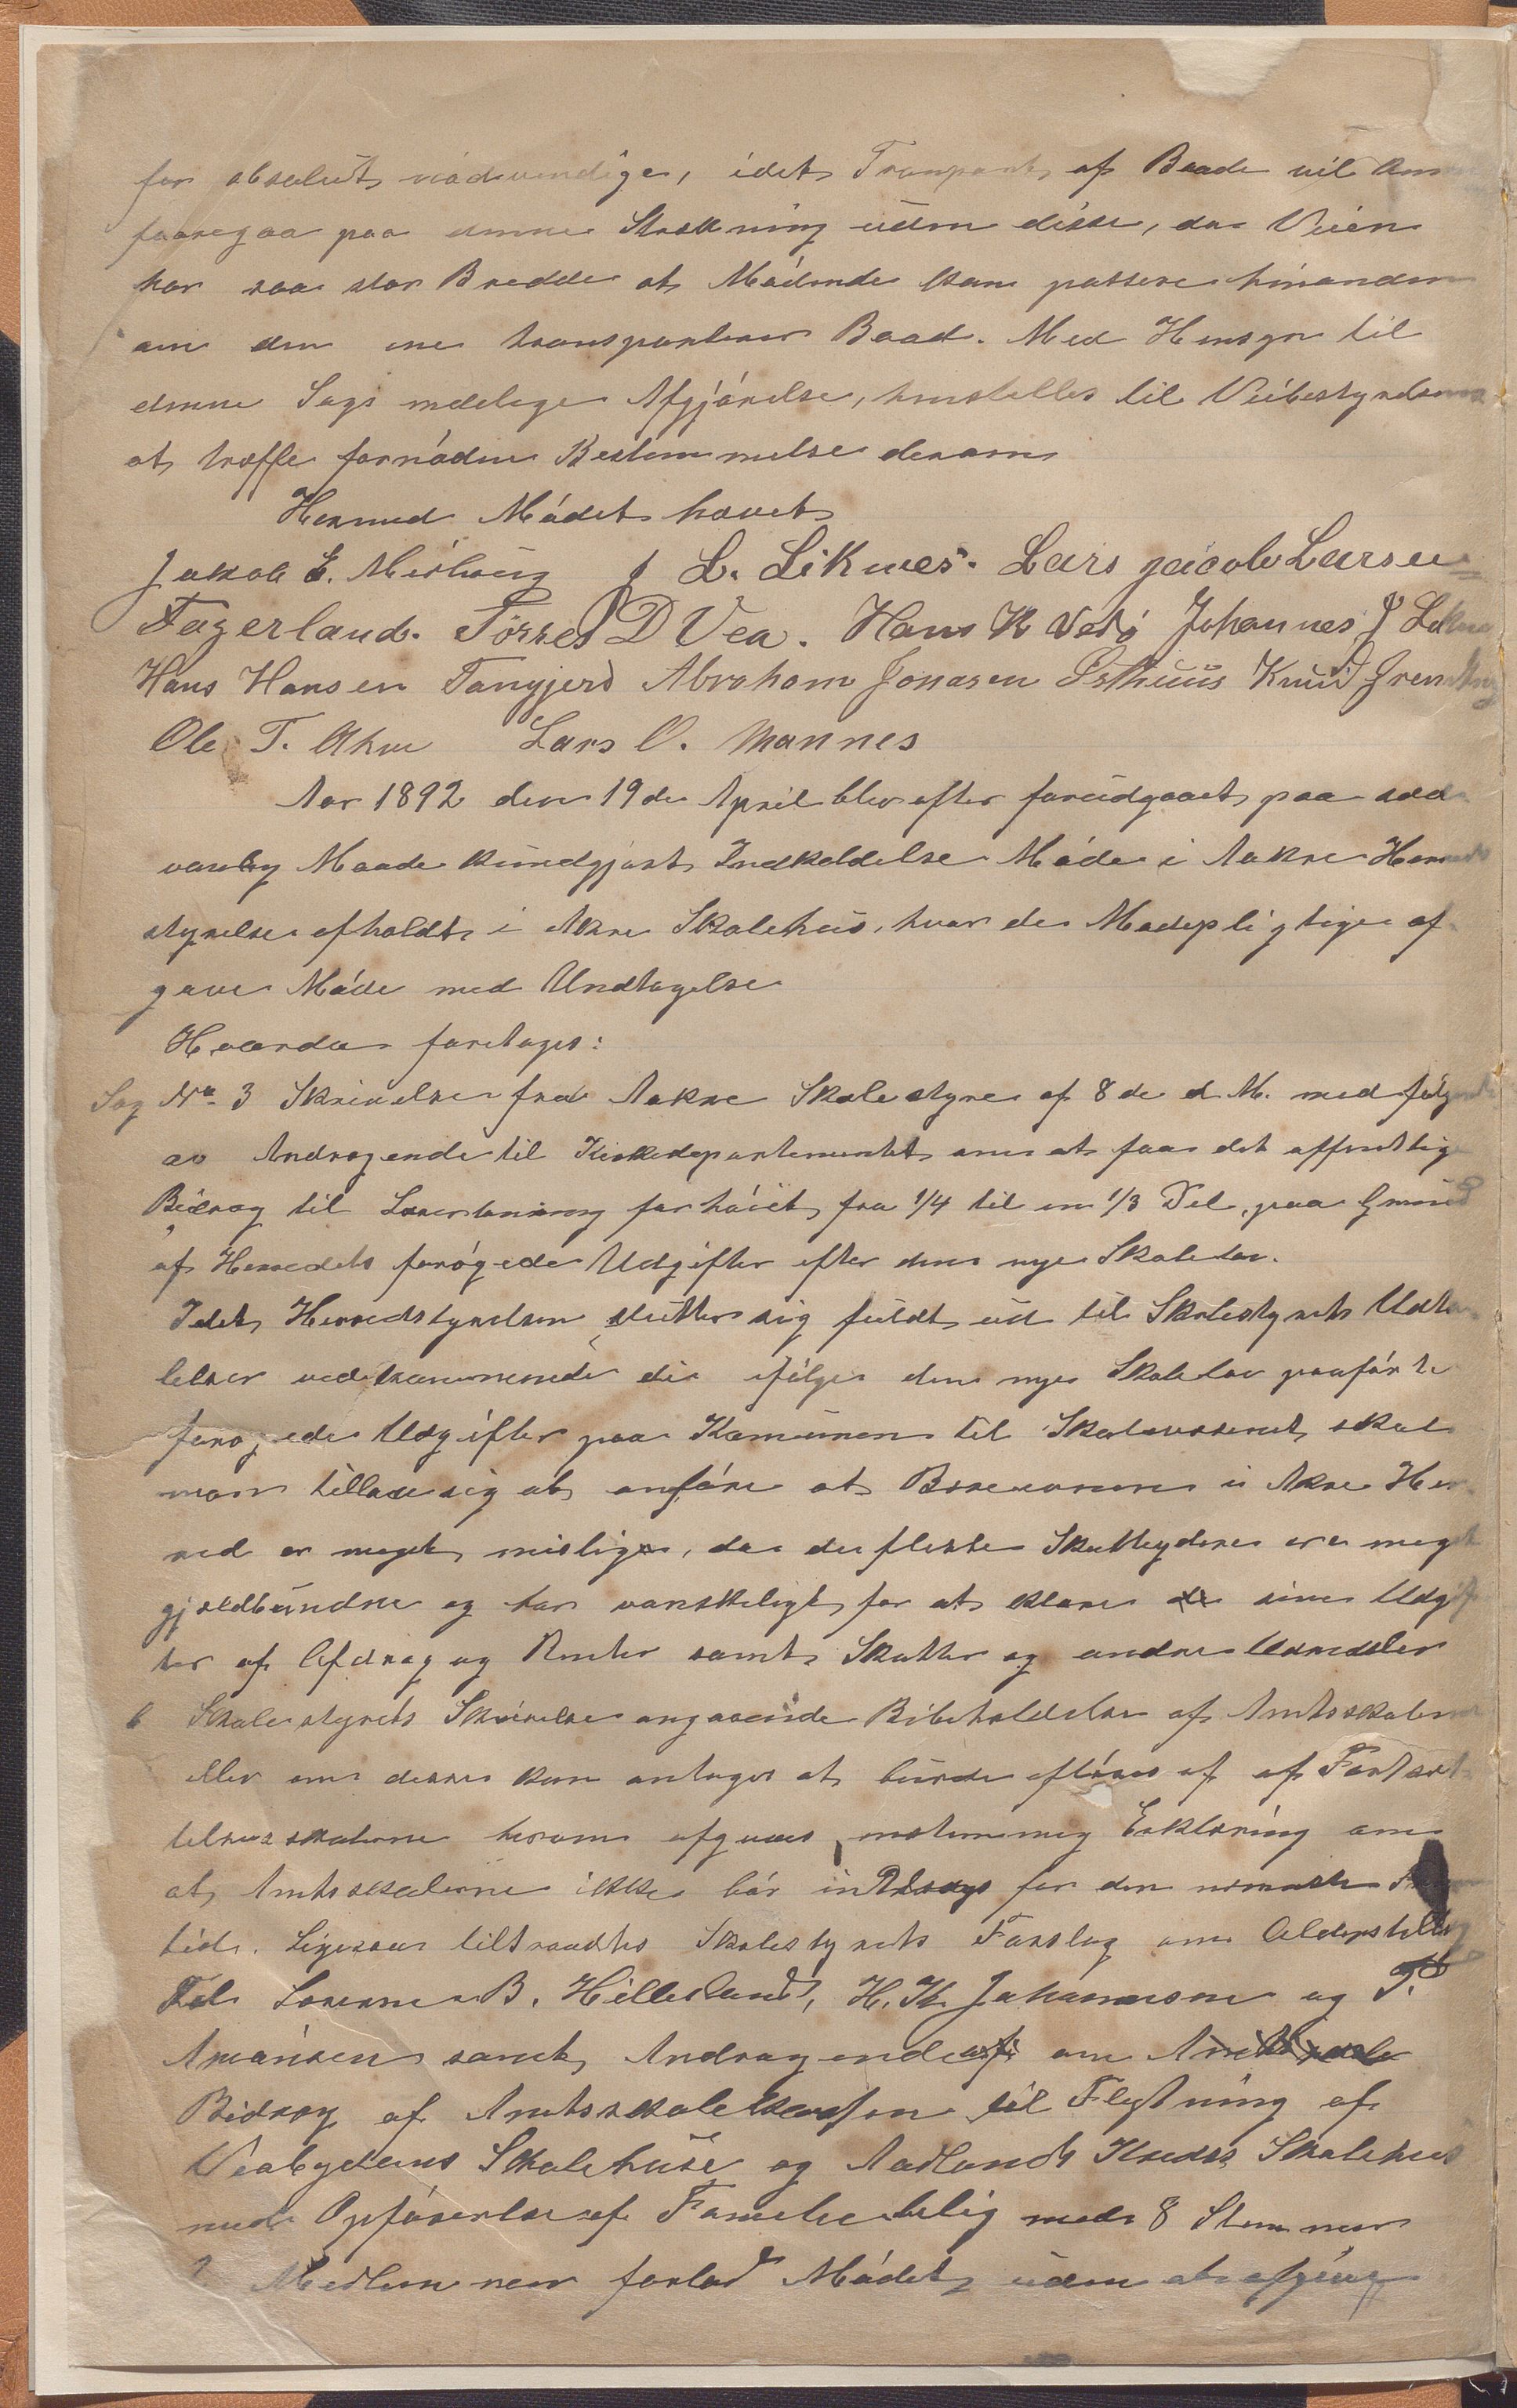 for absolut nødvendige, idet Transport af Baade vil kun
foregaa paa denne Strækning uden disse, da Veien
har saa stor Bredde at Mødende kan passere hinanden
om den ene transporterer Baad. Med Hensyn til
denne Sags endelige Afgjørelse, henstilles til Veibestyrelsen
at træffe fornødne Bestemmelse derom
Hermed Mødet hævet
Jakob E. L. Liknes. Lars Jacob Larsen
Fagerland. Tørres D Vea. Hans K Vedø Johannes J
Hans Hansen Tangjerd Abraham Jonasen Østhuus Knud
Ole T. Lars O. Mannes
Aar 1892 den 19de April blev efter forudgaaet paa sæd
vanlig Maade kundgjort Indkaldelse Møde i Aakre Herreds
styrelse afholdt i Akre Skolehus, hvor de Mødepligtige af
gave Møde med Undtagelse
Hvorda foretages:
Sag No 3 Skrivelse fra Aakre Skolestyre af 8de d. M. med følgende
av Andragende til Kirkedepartementet om at faa det offentlige
Bidrag til Lærerlønning forhøiet fra 1/4 til en 1/3 Del, paa Grund
af Herredets forøgede Udgifter efter den nye Skolelov.
Idet Herredstyrelsen slutter sig fuldt ud til Skolestyrets Udta
lelser vedkommende de ifølge den nye Skolelov paaførte
forøgede Udgifter paa Komunen til Skolevesenet skal
man tillade sig at anføre at Bæreevnen i Akre Her
red er meget mislig, da de fleste Skatteydere er meget
gjældbundne og har vanskeligt for at klare sine Udgif
ter af Afdrag og Renter samt Skatter og andre Udredsler
6 Skolestyrets Skrivelse angaaende Bibeholdelse af Amtsskolen
eller om denne kan antages at burde afløses af af Fortsæt
telsesskolerne herom afgives enstemmig Erklæring om
at Amtsskolerne ikke bør for den nærmeste
tid. Ligesaa tiltraadtes Skolestyrets Forslag om Alderstillæg
Til Lærerne B. Hillesland, H. K. Johannesen og T.
Amansen samt Andragende om
Bidrag af Amtsskolekassen til Flytning af
Veabygdens Skolehuse og Aadlands Kreds Skolehus
med Opførelse af Familiebolig med 8 Stemmer
2 Medlemmer forlod Mødet uden at afgive